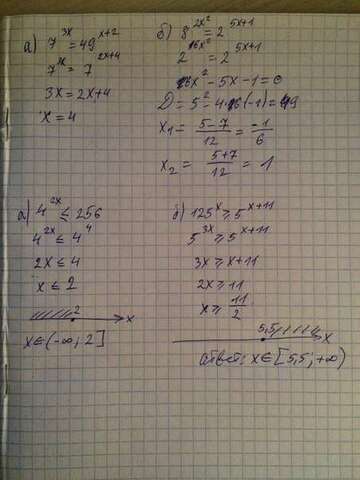 а) 7^3x = 49^x+2
7^3x = 7^2x+4
3x = 2x+4
x = 4
б) 8^2x² = 2^5x+1
2^6x² = 2^5x+1
6x² - 5x - 1 = 0
D = 5² - 4·6(-1) = 49
x1 = 5-7/12 = -1/6
x2 = 5+7/12 = 1
а) 4^2x ≤ 256
4^2x ≤ 4^4
2x ≤ 4
x ≤ 2
2
x
x∈(-∞; 2]
б) 125^x ≥ 5^x+11
5^3x ≥ 5^x+11
3x ≥ x+11
2x ≥ 11
x ≥ 11/2
5,5
x
ответ: x∈[5,5; +∞)